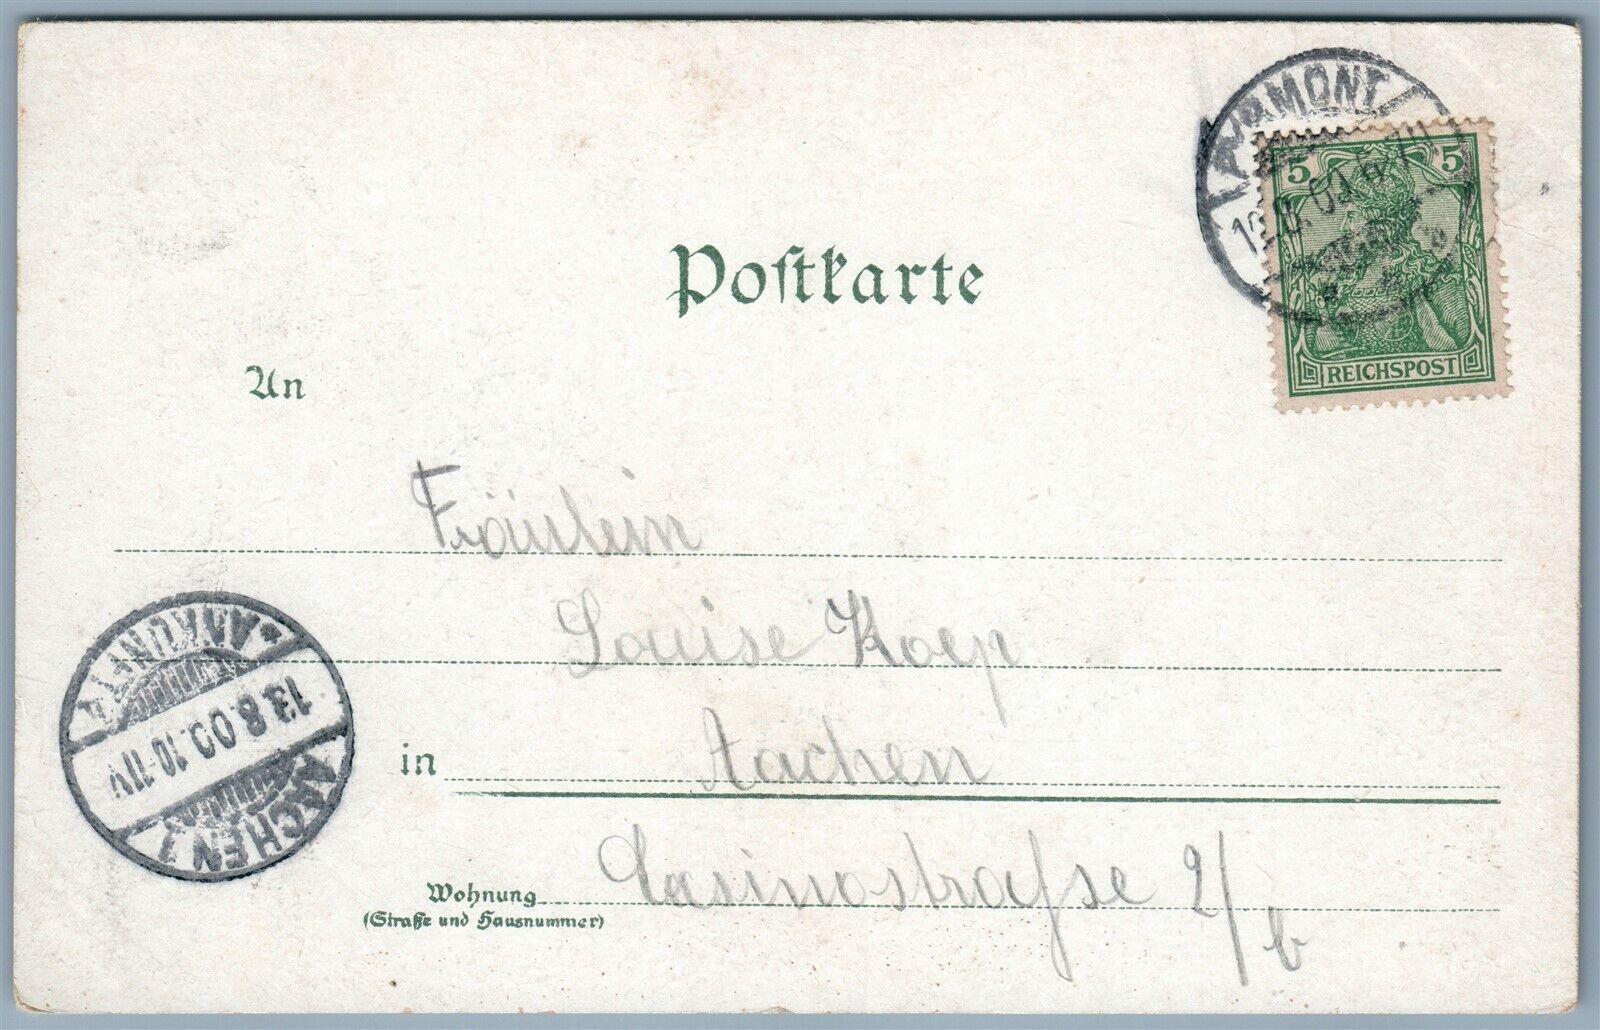 PYRMONT
12.8.00.6-7N
5 5
REICHSPOST
Postkarte
An
Fräulein
Louise Koep
in Aachen
Wohnung Casinostraße 2/b
(Straße und Hausnummer)
*ANKUNFT*
13.8.00.10-11V
AACHEN 1